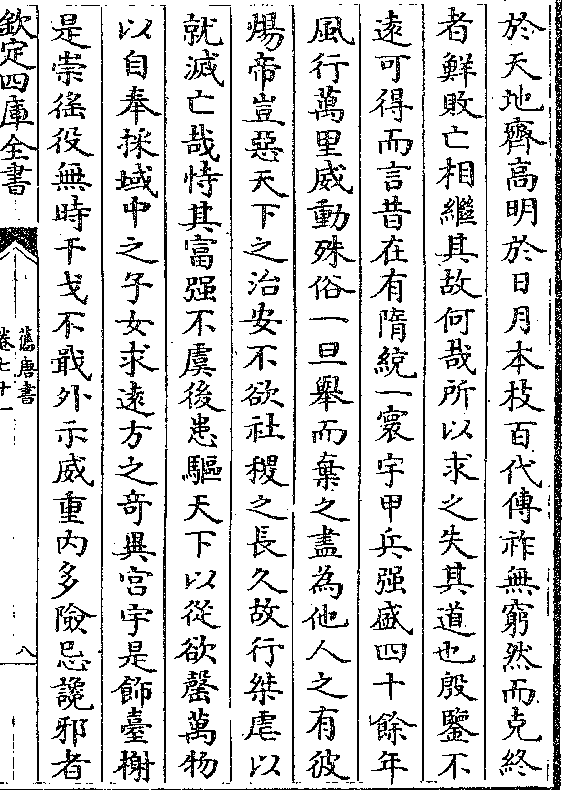 於天地齊高明於日月本枝百代傳祚無窮然而克終
者鮮敗亡相繼其故何哉所以求之失其道也殷鑒不
遠可得而言昔在有隋統一寰宇甲兵强盛四十餘年
風行萬里威動殊俗一旦舉而棄之盡為他人之有彼
煬帝豈惡天下之治安不欲社稷之長久故行桀虐以
就滅亡哉恃其富强不虞後患驅天下以從欲罄萬物
以自奉採域中之子女求逺方之竒異宫宇是飾臺榭
是崇徭役無時干戈不戢外示威重内多險忌讒邪者
欽定四庫全書
舊唐書
卷七十一
八